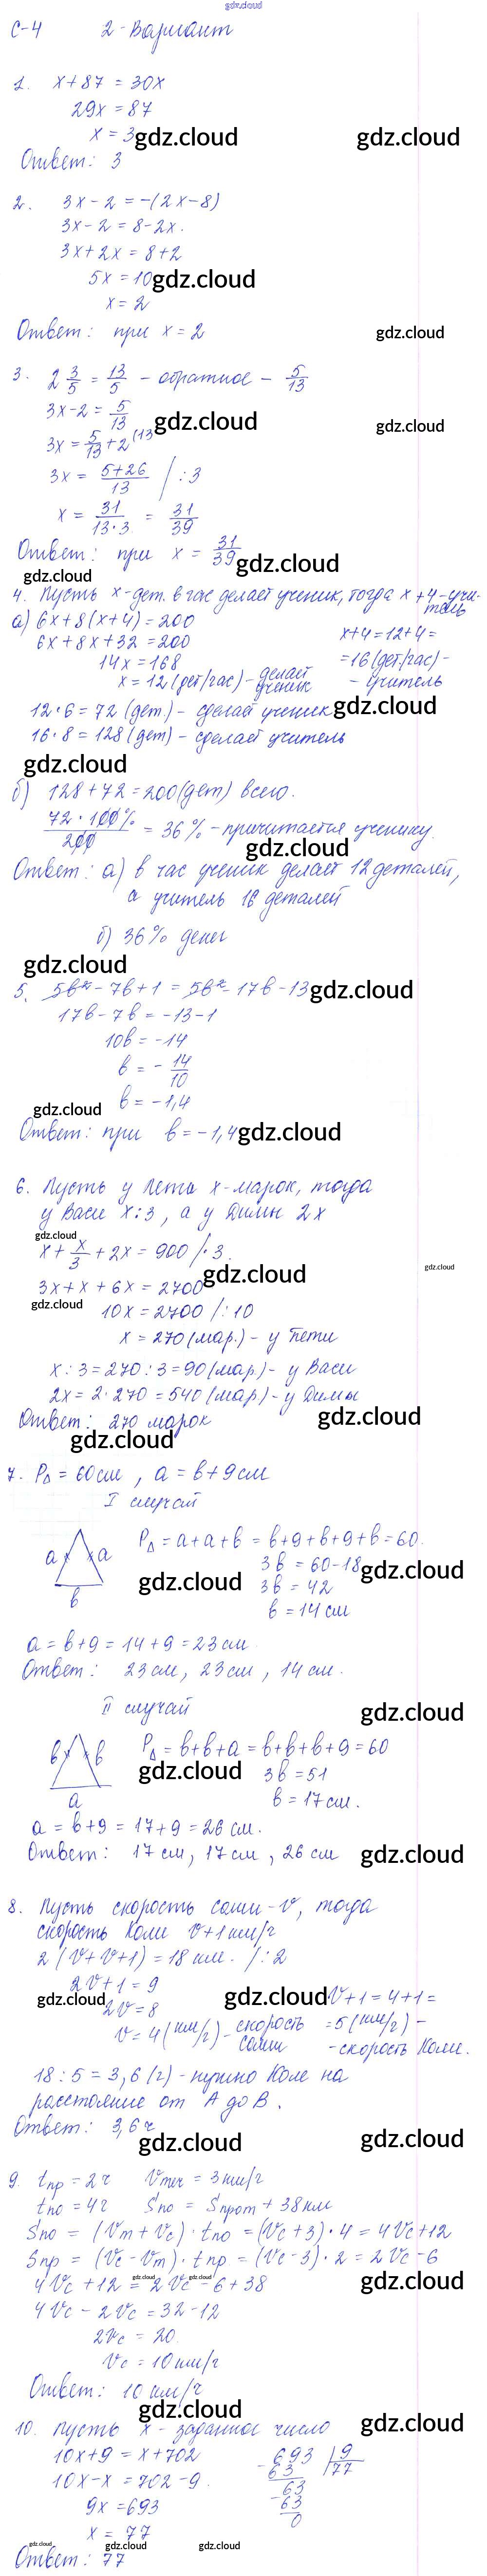 gdz.cloud
С-4 2-Вариант
1. x+87 = 30x
29x = 87
x = 3
gdz.cloud gdz.cloud
Ответ: 3
2. 3x-2 = -(2x-8)
3x-2 = 8-2x.
3x+2x = 8+2
5x = 10
gdz.cloud
x = 2
Ответ: при x = 2
gdz.cloud
3. 2 3/5 = 13/5 - обратное - 5/13
3x-2 = 5/13
gdz.cloud gdz.cloud
3x = 5/13 + 2 (13
3x = (5+26)/13 /:3
x = 31/(13·3) = 31/39
Ответ: при x = 31/39
gdz.cloud
gdz.cloud
4. Пусть x-дет. в час делает ученик, тогда x+4-учитель
а) 6x+8(x+4)=200
6x+8x+32=200
14x=168
x=12(дет/час)-делает ученик
x+4=12+4=
=16(дет/час)-
-учитель
12·6=72(дет.)- сделает ученик
gdz.cloud
16·8=128(дет)-сделает учитель
gdz.cloud
б) 128+72=200(дет) всего.
72·100%/200 = 36%-причитается ученику.
gdz.cloud
Ответ: а) в час ученик делает 12 деталей,
а учитель 16 деталей
б) 36% денег
gdz.cloud
5. 5b²-7b+1 = 5b²-17b-13
gdz.cloud
17b-7b = -13-1
10b = -14
b = -14/10
b = -1,4
gdz.cloud
Ответ: при b = -1,4
gdz.cloud
6. Пусть у Пети x-марок, тогда
у Васи x:3, а у Димы 2x
gdz.cloud
x + x/3 + 2x = 900 /·3.
gdz.cloud
3x+x+6x = 2700
gdz.cloud
gdz.cloud
10x = 2700 /:10
x = 270(мар.)- у Пети
x:3 = 270:3 = 90(мар.)- у Васи
2x = 2·270 = 540(мар)-у Димы
Ответ: 270 марок
gdz.cloud
gdz.cloud
7. P△ = 60см, a = b+9см
I случай
a a
b
P△ = a+a+b = b+9+b+9+b = 60.
3b = 60-18
gdz.cloud gdz.cloud
3b = 42
b = 14см
a = b+9 = 14+9 = 23см.
Ответ: 23см, 23см, 14см.
II случай
gdz.cloud
b b
a
P△ = b+b+a = b+b+b+9 = 60
gdz.cloud
3b = 51
b = 17см.
a = b+9 = 17+9 = 26см.
Ответ: 17см, 17см, 26см
gdz.cloud
8. Пусть скорость Саши-v, тогда
скорость Коли v+1км/г
2(v+v+1)=18км. /:2
2v+1 = 9
gdz.cloud gdz.cloud
2v=8
v=4(км/г)-скорость Саши
v+1=4+1=
=5(км/г)-
-скорость Коли.
18:5 = 3,6(г)-нужно Коле на
расстояние от A до B.
Ответ: 3,6ч
gdz.cloud gdz.cloud
9. tпр = 2г vтеч = 3км/г
tпо = 4г Sпо = Sпрот + 38км
Sпо = (vт+vс)·tпо = (vс+3)·4 = 4vс+12
Sпр = (vс-vт)·tпр = (vс-3)·2 = 2vс-6
gdz.cloud gdz.cloud gdz.cloud
4vс+12 = 2vс-6+38
4vс-2vс = 32-12
2vс = 20.
vс = 10км/г
Ответ: 10км/ч
gdz.cloud gdz.cloud
10. Пусть x-заданное число
10x+9 = x+702
10x-x = 702-9.
9x = 693
x = 77
693 | 9
63 77
63
63
0
gdz.cloud gdz.cloud gdz.cloud
Ответ: 77